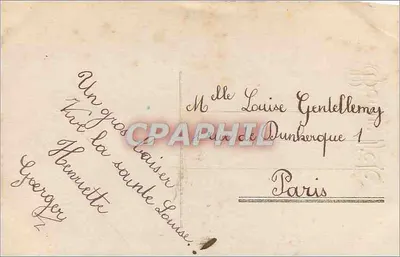 Un gros baiser
Vive la sainte Louise.
Henriette
Goerger
Melle Louise Gentellemy
de Dunkerque 1
Paris
CPAPHIL.COM